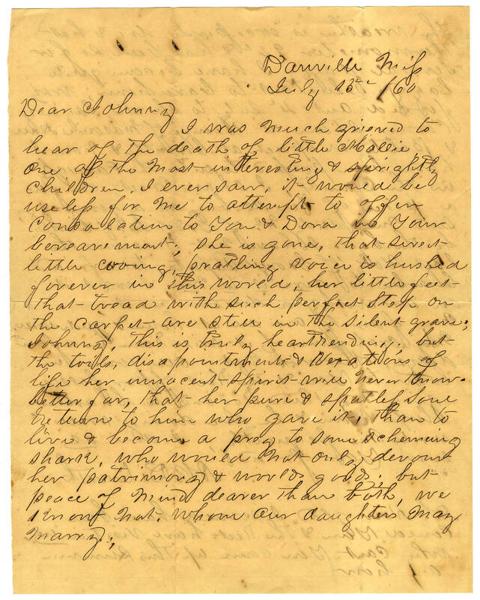 Danville Miss
July 13th /60
Dear Johnny
I was much grieved to
hear of the death of little Mollie
one of the most interesting & sprightly
children, I ever saw, it would be
useless for me to attempt to offer
Consolation to You & Dora in Your
bereavement, She is gone, that sweet
little cooing, pratling voice is hushed
forever in this world, her little feet
that tread with such perfect Step on
the carpet are still in the silent grave,
Johnny, this is truly heartrending. but
the toils, disapointments & vexations of
life her innocent Spirit will never know
better far, that her pure & spotless Soul
Return to him who gave it, than to
live & become a prey to some scheming
shark, who would not only devour
her patrimony & worldly goods, but
peace of mind dearer than both, we
Know not whom our daughters May
Marry,